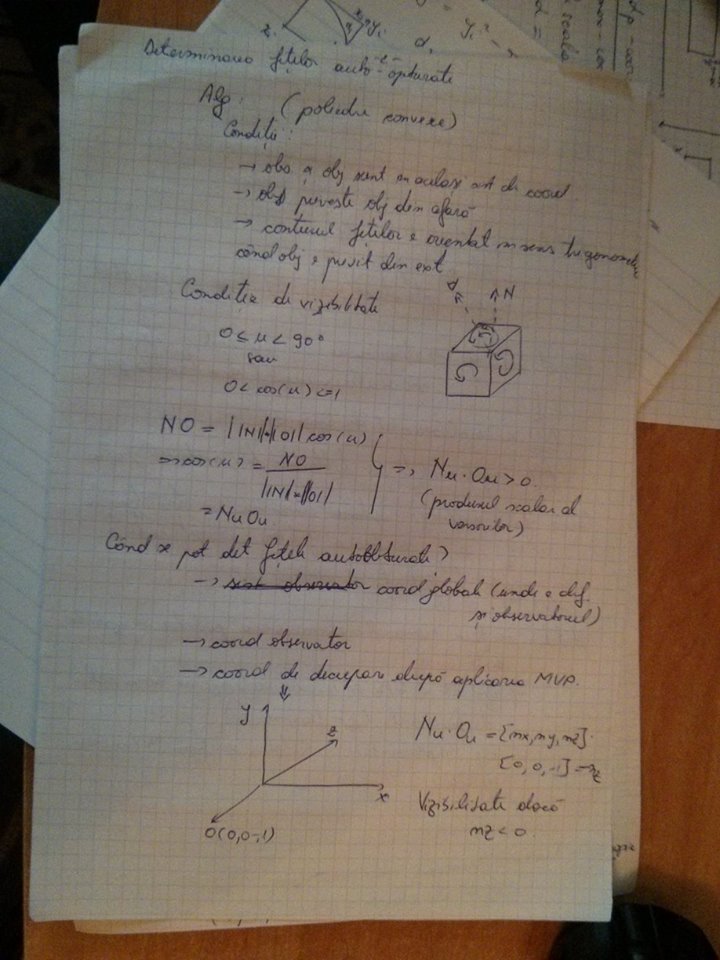 Determinarea fețelor auto-opturate
Alg: (poliedre convexe)
Condiții:
→ obs și obj sunt în același sist de coord.
→ obs privește obj din afară
→ conturul fețelor e orientat în sens trigonometric
când obj e privit din ext
Condiția de vizibilitate
0 ≤ u < 90°
sau
0 < cos(u) <=1
N
O
NO = ||N||*||O|| cos(u)
=> cos(u) = NO / ||N||*||O||
= Nu Ou
=> Nu · Ou > 0.
(produsul scalar al
versorilor)
Când se pot det fețele autoobturate?
→ coord globale (unde e def.
și observatorul)
→ coord observator
→ coord de decupare după aplicarea MVP.
y
z
x
O(0,0,-1)
Nu · Ou = [nx, ny, nz] ·
[0, 0, -1] = -nz
Vizibilitate dacă
nz < 0.